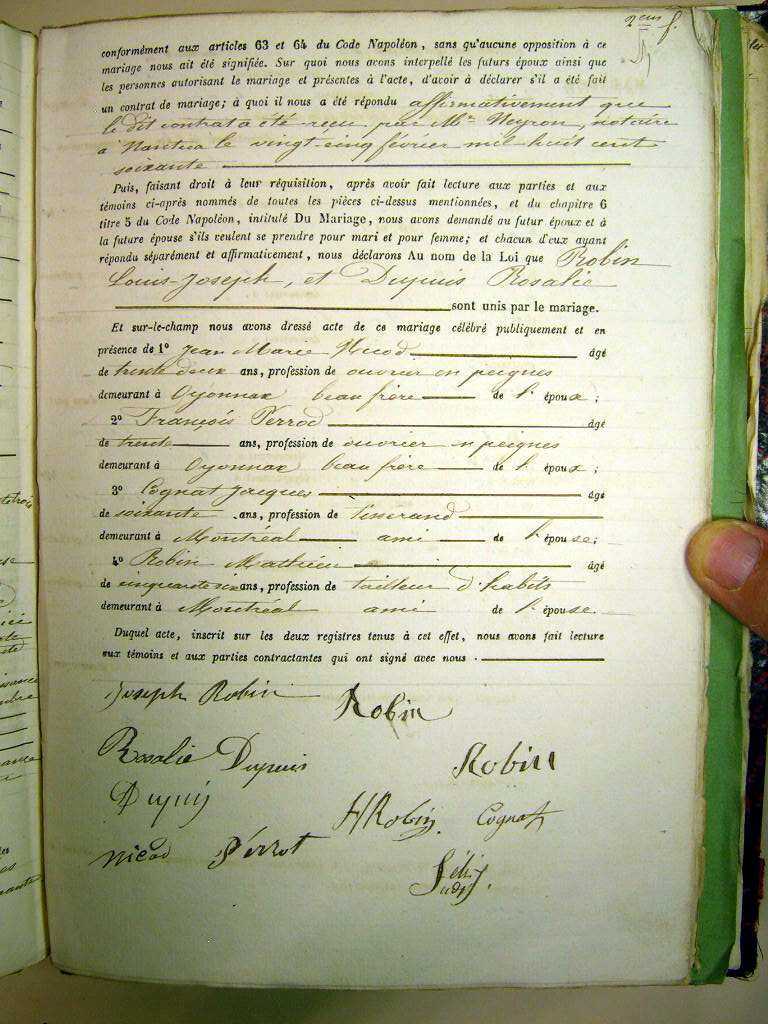 2eme f.
conformément aux articles 63 et 64 du Code Napoléon, sans qu'aucune opposition à ce
mariage nous ait été signifiée. Sur quoi nous avons interpellé les futurs époux ainsi que
les personnes autorisant le mariage et présentes à l'acte, d'avoir à déclarer s'il a été fait
un contrat de mariage; à quoi il nous a été répondu affirmativement que
le dit contrat a été reçu par Me Neyron, notaire
à Nantua le vingt-cinq février mil-huit cent
soixante
Puis, faisant droit à leur réquisition, après avoir fait lecture aux parties et aux
témoins ci-après nommés de toutes les pièces ci-dessus mentionnées, et du chapitre 6
titre 5 du Code Napoléon, intitulé Du Mariage, nous avons demandé au futur époux et à
la future épouse s'ils veulent se prendre pour mari et pour femme; et chacun d'eux ayant
répondu séparément et affirmativement, nous déclarons Au nom de la Loi que Robin
Louis-Joseph, et Dupuis Rosalie
sont unis par le mariage.
Et sur-le-champ nous avons dressé acte de ce mariage célébré publiquement et en
présence de 1º Jean Marie Nicod âgé
de trente deux ans, profession de ouvrier en peignes
demeurant à Oyonnax beau frère de l'époux;
2º François Perrod âgé
de trente ans, profession de ouvrier en peignes
demeurant à Oyonnax beau frère de l'époux;
3º Cognat Jacques âgé
de soixante ans, profession de tisserand
demeurant à Montréal ami de l'épouse;
4º Robin Mathieu âgé
de cinquante six ans, profession de tailleur d'habits
demeurant à Montréal ami de l'épouse.
Duquel acte, inscrit sur les deux registres tenus à cet effet, nous avons fait lecture
aux témoins et aux parties contractantes qui ont signé avec nous.
Joseph Robin Robin
Rosalie Dupuis Robin
Dupuis HRobin Cognat
Nicod Perrot